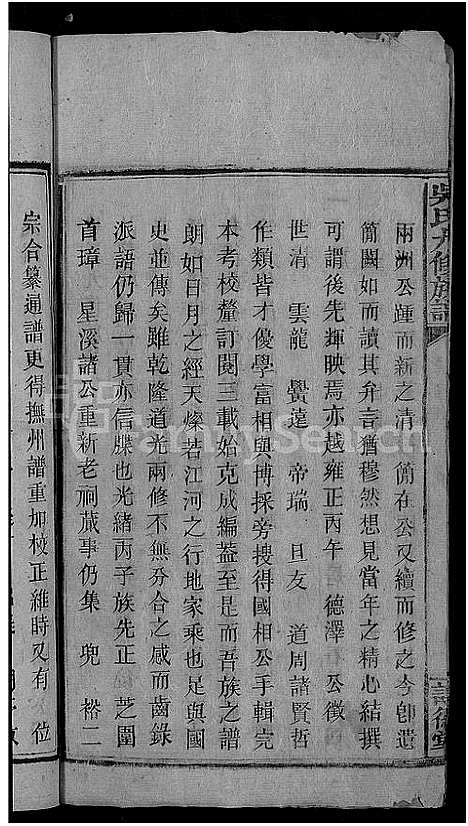 兩洲公踵而新之清 簡在公又續而修之今卽遺
簡圖如而讀其弁言猶穆然想見當年之精心結撰
可謂後先輝映焉亦越雍正丙午 德澤 公徵
世清 雲龍 饗遠 帝瑞 旦友 道周諸賢哲
作類皆才優學富相與博採旁搜得國相公手輯完
本考校釐訂閱三載始克成編葢至是而吾族之譜
朗如日月之經天燦若江河之行地家乘也足與國
史並傳矣雖乾隆道光兩修不無分合之感而齒錄
派語仍歸一貫亦信牒也光緒丙子族先正 芝圃
首璋 星溪諸公重新老祠蕆事仍集 兜 裕二
宗合纂通譜更得撫州譜重加校正維時又有 位